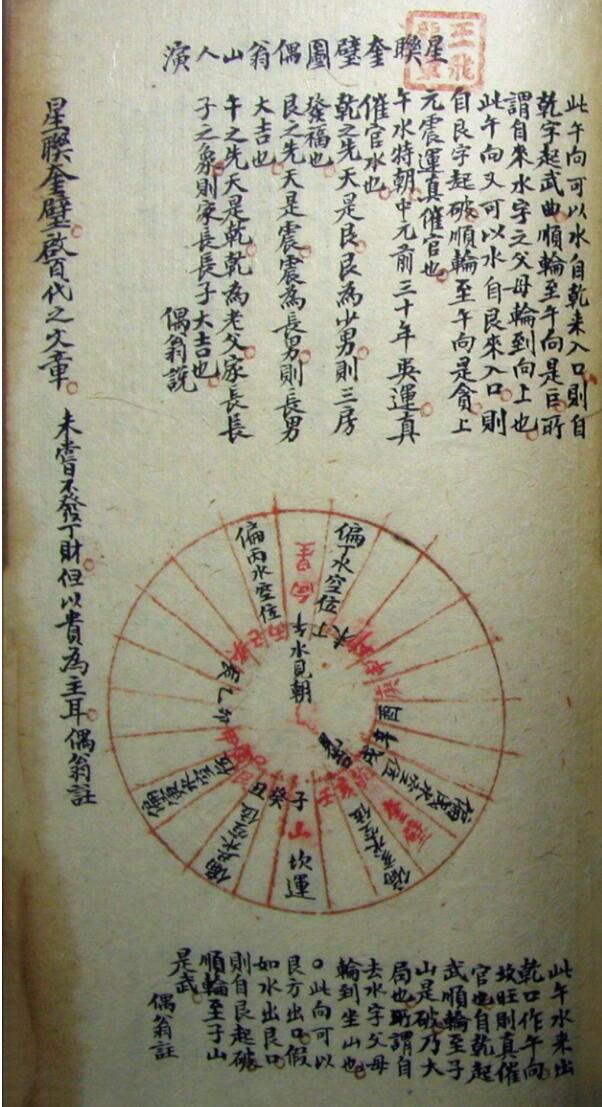 星聯奎璧圖偶翁山人演
此午向可以水自乾来入口則自
乾字起武曲順輪至午向是巨所
謂自来水字之父母輪到向上也
此午向又可以水自艮來入口則
自艮字起破順輪至午向是貪上
元震運真催官也
午水特朝中元前三十年巽運真
催官水也
乾之先天是艮艮為少男則三房
發福也
艮之先天是震震為長男則長男
大吉也
午之先天是乾乾為老父家長長
子之象則家長長子大吉也
偶翁說
星聯奎璧啟百代之文章
未嘗不發丁財但以貴為主耳偶翁註
偏丁水空位
偏丙水空位
向
午水見朝
辰乙卯
丑癸子
山
坎運
此午水来出
乾口作午向
故旺則真催
官也自乾起
武順輪至子
山是破乃大
局也所謂自
去水字父母
輪到坐山也
○此向可以
艮方出口假
如水出艮口
則自艮起破
順輪至子山
是武
偶翁註